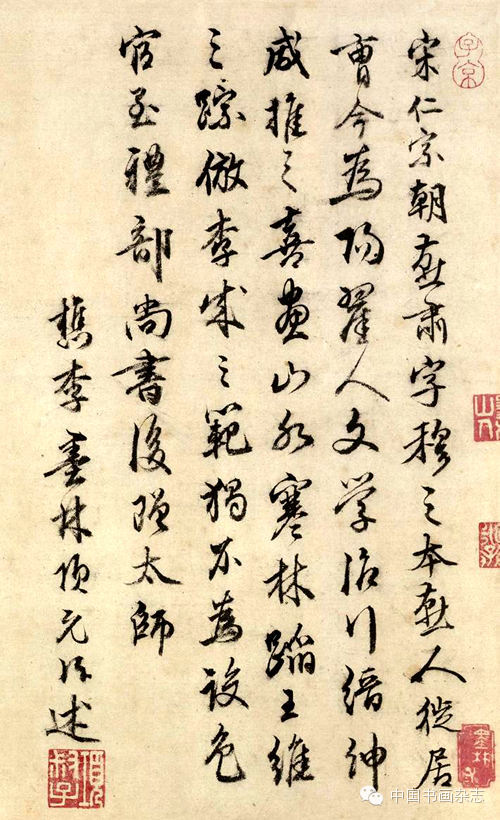 宋仁宗朝燕肅字穆之本燕人徙居
曹今為陽翟人文学治行縉紳
咸推之喜畫山水寒林蹈王維
之蹤倣李成之範獨不為設色
官至禮部尚書後贈太師
檇李墨林項元汴述
子京
中国书画杂志